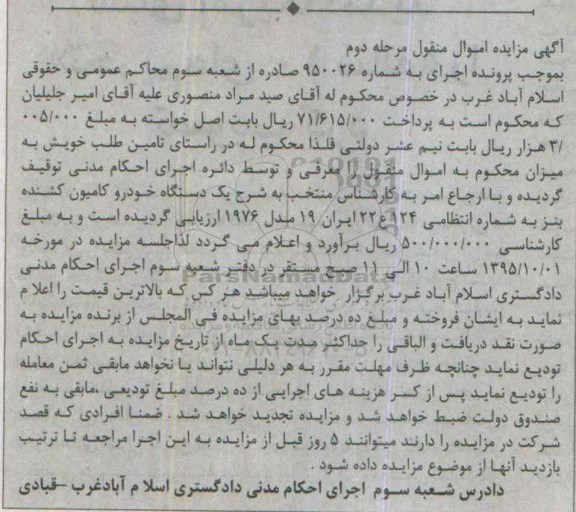 آگهی مزایده اموال منقول مرحله دوم
بموجب پرونده اجرای به شماره ۹۵۰۰۲۶ صادره از شعبه سوم محاکم عمومی و حقوقی
اسلام آباد غرب در خصوص محکوم له آقای صید مراد منصوری علیه آقای امیر جلیلیان
که محکوم است به پرداخت ۷۱/۶۱۵/۰۰۰ ریال بابت اصل خواسته به مبلغ ۰۰۵/۰۰۰
/۳ هزار ریال بابت نیم عشر دولتی فلذا محکوم له در راستای تامین طلب خویش به
میزان محکوم به اموال منقول را معرفی و توسط دائره اجرای احکام مدنی توقیف
گردیده و با ارجاع امر به کارشناس منتخب به شرح یک دستگاه خودرو کامیون کشنده
بنز به شماره انتظامی ۱۲۴ ع۲۲ ایران ۱۹ مدل ۱۹۷۶ ارزیابی گردیده است و به مبلغ
کارشناسی ۵۰۰/۰۰۰/۰۰۰ ریال برآورد و اعلام می گردد لذاجلسه مزایده در مورخه
۱۳۹۵/۱۰/۰۱ ساعت ۱۰ الی ۱۱ صبح مستقر در دفتر شعبه سوم اجرای احکام مدنی
دادگستری اسلام آباد غرب برگزار خواهد میباشد هر کس که بالاترین قیمت را اعلا م
نماید به ایشان فروخته و مبلغ ده درصد بهای مزایده فی المجلس از برنده مزایده به
صورت نقد دریافت و الباقی را حداکثر مدت یک ماه از تاریخ مزایده به اجرای احکام
تودیع نماید چنانچه ظرف مهلت مقرر به هر دلیلی نتواند یا نخواهد مابقی ثمن معامله
را تودیع نماید پس از کسر هزینه های اجرایی از ده درصد مبلغ تودیعی ،مابقی به نفع
صندوق دولت ضبط خواهد شد و مزایده تجدید خواهد شد . ضمنا افرادی که قصد
شرکت در مزایده را دارند میتوانند ۵ روز قبل از مزایده به این اجرا مراجعه تا ترتیب
بازدید آنها از موضوع مزایده داده شود .
دادرس شعبه سوم اجرای احکام مدنی دادگستری اسلا م آبادغرب –قبادی
ParsNamadData